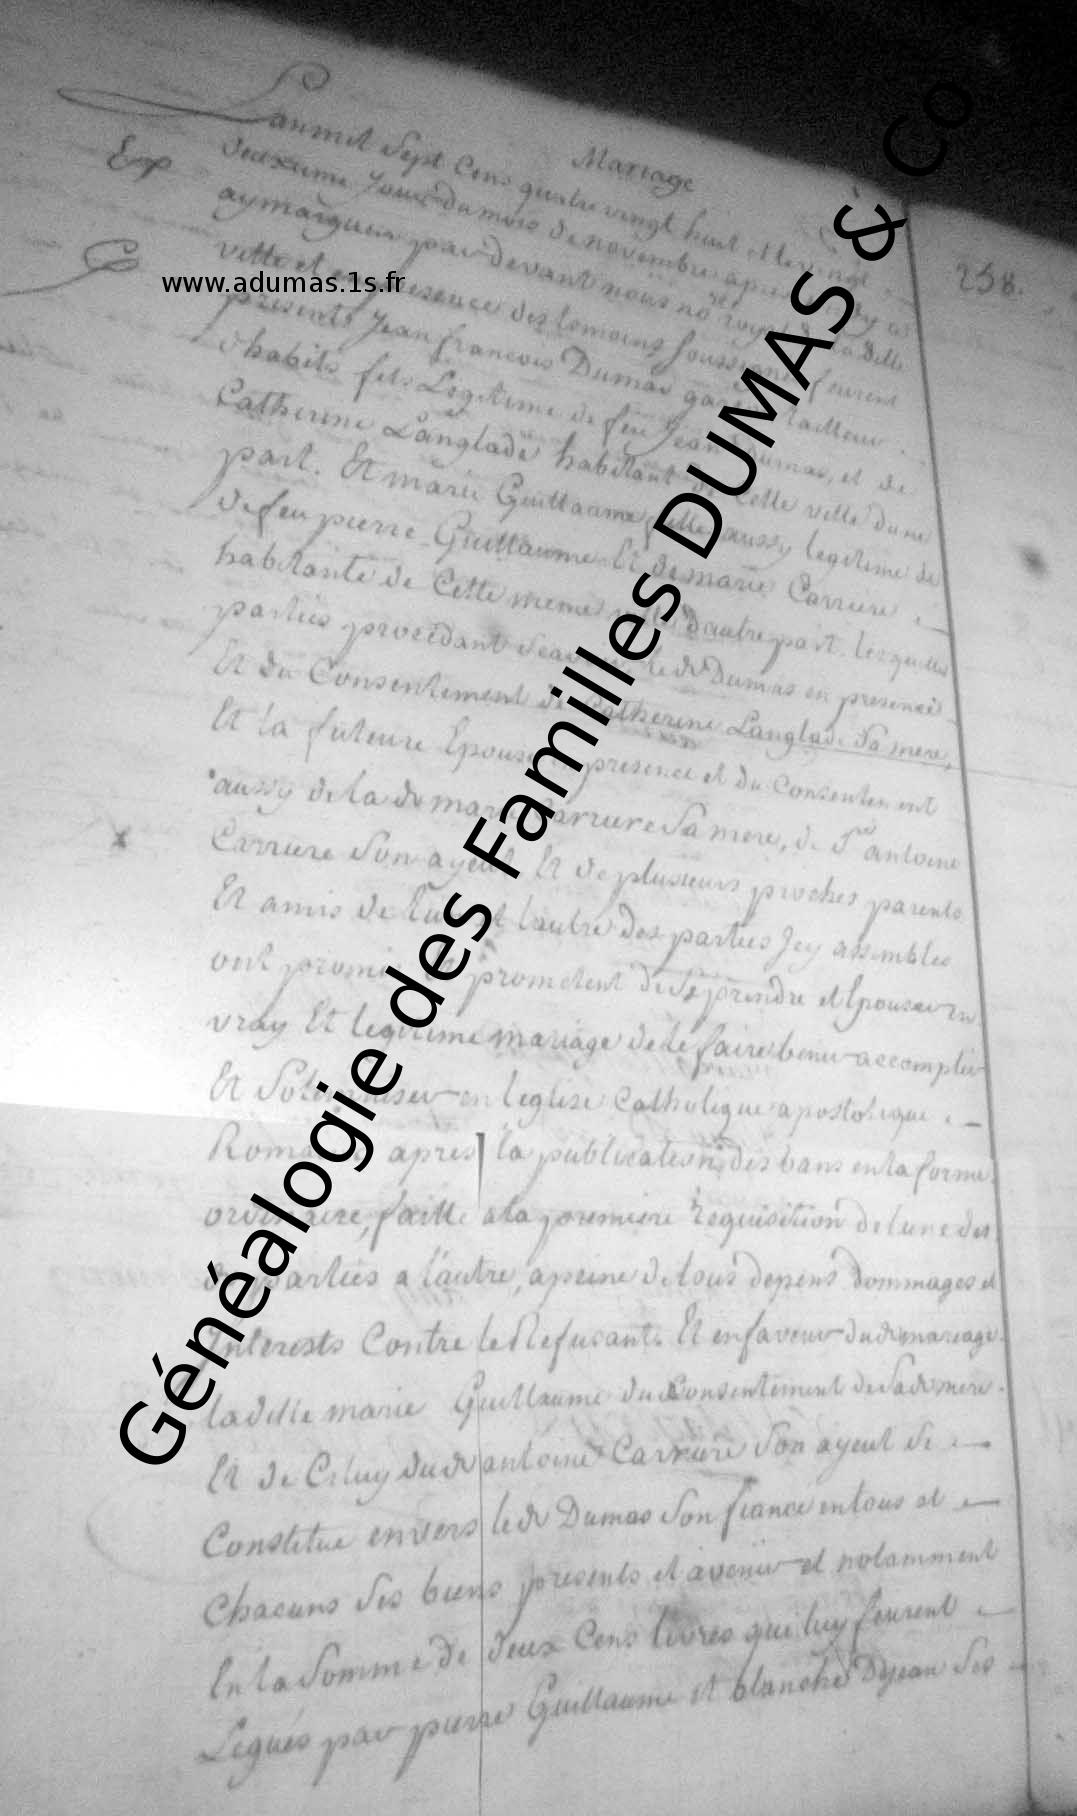 Mariage
258.
Lan mil sept cens quatre vingt huit et le vingt
Ex
deuxieme jour du mois de novembre apres midy a
aymargues par devant nous no.re royal de la ditte
ville et en presence des temoins soussignés furent
www.adumas.1s.fr
presents jean francois Dumas garçon tailleur
dhabits fils Legitime de feu jean Dumas, et de
Catherine Langlade habitant de Cette ville dune
part. Et marie Guillaume fille aussy legitime de
de feu pierre Guillaume Et de marie Carriere
habitante de Cette meme ville dautre part. lesquelles
parties procedant scavoir le dt Dumas en presence
Et du Consentement de Catherine Langlade Sa mere,
Et la future Epouse presence et du Consentement
aussy de la de marie Carriere Sa mere, de Sr antoine
Carriere Son ayeul Et de plusieurs proches parents
Et amis de lune et lautre des parties Jcy assembles
ont promis Et promettent de se prendre et Epouser en
vray Et legitime mariage de le faire benir accomplir
Et Solemniser en leglise Catholique apostolique
Romaine apres la publication des bans en la forme
ordinaire, faitte a la premiere Requisition de lune des
parties a lautre, apeine de tous depens dommages et
Interests Contre le Refusant. Et en faveur dudt mariage
laditte marie Guillaume du Consentement de Sadt mere
Et de Celuy dudt antoine Carriere Son ayeul Se
Constitue envers le dt Dumas Son fiancé en tous et
Chacuns Ses biens presents et avenir et notamment
En la Somme de deux Cens livres qui luy feurent
Legués par pierre Guillaume et blanche Dejean Ses
Généalogie des Familles DUMAS & Co